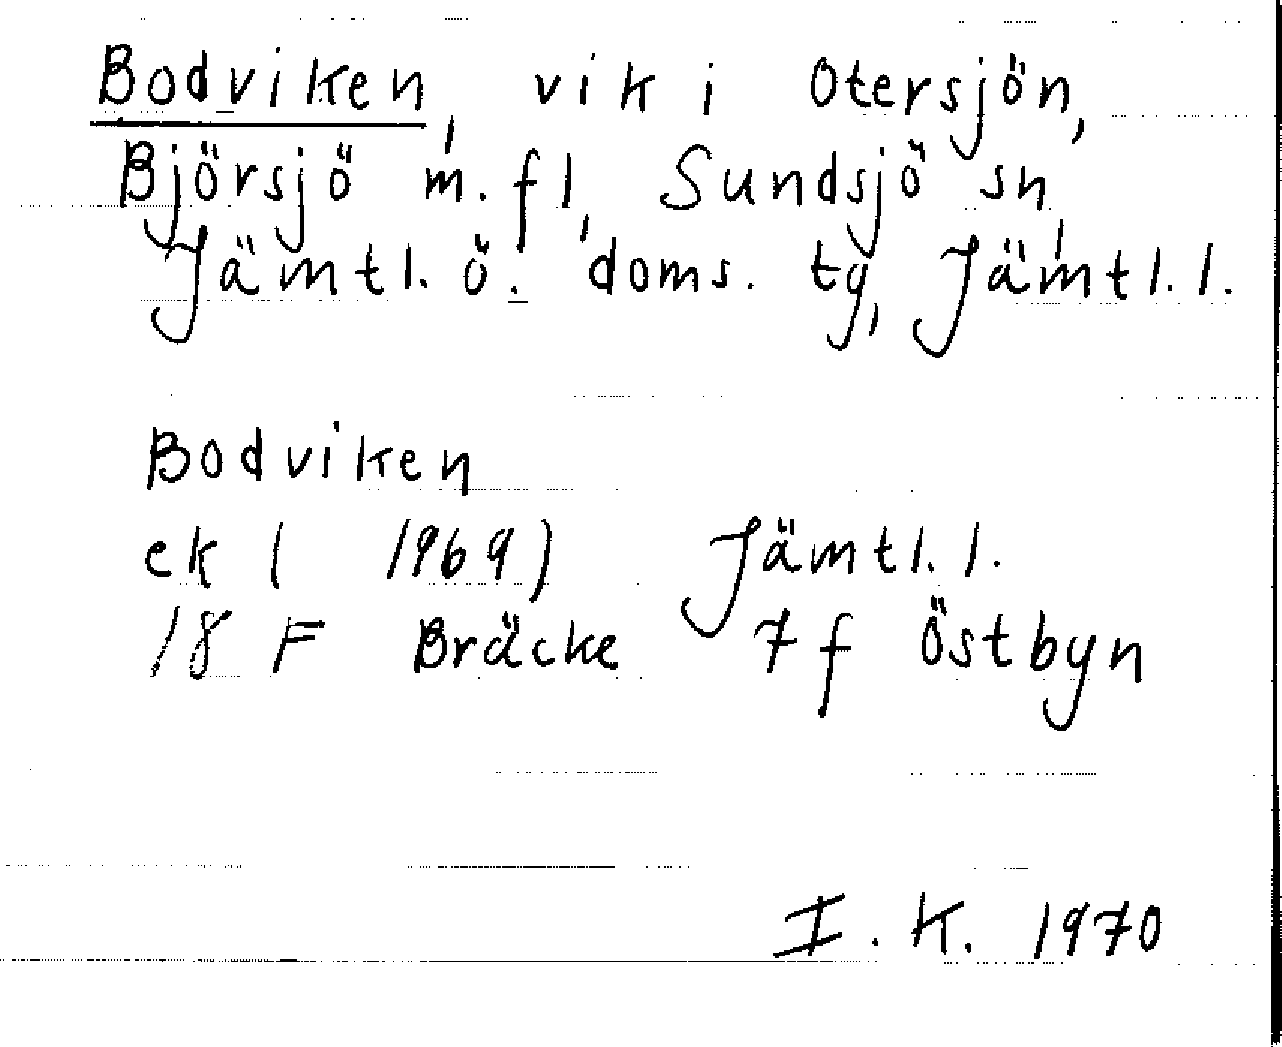 Bodviken, vik i Otersjön,
Björsjö m.fl, Sundsjö sn,
Jämtl. ö. doms. tg, Jämtl.l.
Bodviken
ek ( 1969) Jämtl.l.
18 F Bräcke 7 f Östbyn
I. K. 1970